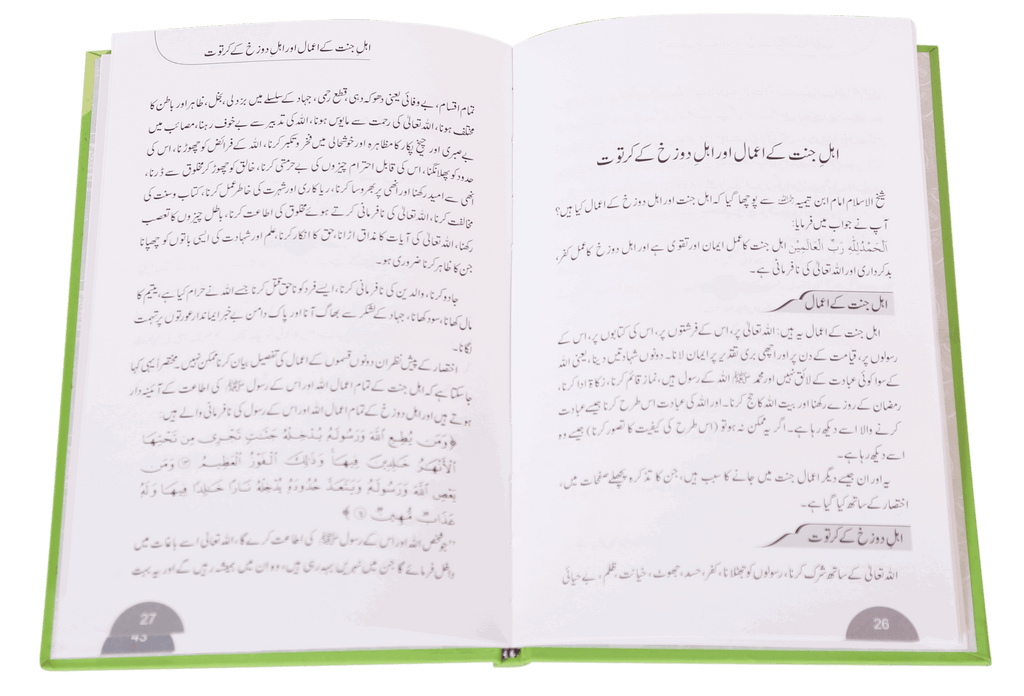 اہلِ جنت کے اعمال اور اہلِ دوزخ کے کرتوت
شیخ الاسلام امام ابن تیمیہ رحمہ اللہ سے پوچھا گیا کہ اہل جنت اور اہل دوزخ کے اعمال کیا ہیں؟
آپ نے جواب میں فرمایا:
اَلْحَمْدُلِلّٰہِ رَبِّ الْعَالَمِیْنَ اہل جنت کا عمل ایمان اور تقویٰ ہے اور اہل دوزخ کا عمل کفر،
بدکرداری اور اللہ تعالیٰ کی نافرمانی ہے۔
اہل جنت کے اعمال
اہل جنت کے اعمال یہ ہیں: اللہ تعالیٰ پر، اس کے فرشتوں پر، اس کی کتابوں پر، اس کے
رسولوں پر، قیامت کے دن پر اور اچھی بری تقدیر پر ایمان لانا۔ دونوں شہادتیں دینا، یعنی اللہ
کے سوا کوئی عبادت کے لائق نہیں اور محمد ﷺ اللہ کے رسول ہیں، نماز قائم کرنا، زکاۃ ادا کرنا،
رمضان کے روزے رکھنا اور بیت اللہ کا حج کرنا۔ اور اللہ کی عبادت اس طرح کرنا جیسے عبادت
کرنے والا اسے دیکھ رہا ہے۔ اگر یہ ممکن نہ ہو تو (اس طرح کی کیفیت کا تصور کرنا) جیسے وہ
اسے دیکھ رہا ہے۔
یہ اور ان جیسے دیگر اعمال جنت میں جانے کا سبب ہیں، جن کا تذکرہ پچھلے صفحات میں،
اختصار کے ساتھ کیا گیا ہے۔
اہل دوزخ کے کرتوت
اللہ تعالیٰ کے ساتھ شرک کرنا، رسولوں کو جھٹلانا، کفر، حسد، جھوٹ، خیانت، ظلم، بے حیائی
26
اہل جنت کے اعمال اور اہل دوزخ کے کرتوت
تمام اقسام، بے وفائی یعنی دھوکہ دہی، قطع رحمی، جہاد کے سلسلے میں بزدلی، بخل، ظاہر اور باطن کا
مختلف ہونا، اللہ تعالیٰ کی رحمت سے مایوس ہونا، اللہ کی تدبیر سے بے خوف رہنا، مصائب میں
بے صبری اور چیخ پکار کا مظاہرہ اور خوشحالی میں فخر و تکبر کرنا، اللہ کے فرائض کو چھوڑنا، اس کی
حدود کو پھلانگنا، اس کی قابل احترام چیزوں کی بے حرمتی کرنا، خالق کو چھوڑ کر مخلوق سے ڈرنا،
انھی سے امید رکھنا اور انھی پر بھروسا کرنا، ریاکاری اور شہرت کی خاطر عمل کرنا، کتاب و سنت کی
مخالفت کرنا، اللہ تعالیٰ کی نافرمانی کرتے ہوئے مخلوق کی اطاعت کرنا، باطل چیزوں کا تعصب
رکھنا، اللہ تعالیٰ کی آیات کا مذاق اڑانا، حق کا انکار کرنا، علم اور شہادت کی ایسی باتوں کو چھپانا
جن کا ظاہر کرنا ضروری ہو۔
جادو کرنا، والدین کی نافرمانی کرنا، ایسے فرد کو ناحق قتل کرنا جسے اللہ نے حرام کیا ہے، یتیم کا
مال کھانا، سود کھانا، جہاد کے لشکر سے بھاگ آنا اور پاک دامن بے خبر ایماندار عورتوں پر تہمت
لگانا۔
اختصار کے پیش نظر ان دونوں قسموں کے اعمال کی تفصیل بیان کرنا ممکن نہیں۔ مختصراً یہی کہا
جا سکتا ہے کہ اہل جنت کے تمام اعمال اللہ اور اس کے رسول ﷺ کی اطاعت کے آئینہ دار
ہوتے ہیں اور اہل دوزخ کے تمام اعمال اللہ اور اس کے رسول کی نافرمانی والے ہیں:
﴿وَمَن يُطِعِ ٱللَّهَ وَرَسُولَهُۥ يُدْخِلْهُ جَنَّٰتٍ تَجْرِى مِن تَحْتِهَا
ٱلْأَنْهَٰرُ خَٰلِدِينَ فِيهَا ۚ وَذَٰلِكَ ٱلْفَوْزُ ٱلْعَظِيمُ ۝١٣ وَمَن
يَعْصِ ٱللَّهَ وَرَسُولَهُۥ وَيَتَعَدَّ حُدُودَهُۥ يُدْخِلْهُ نَارًا خَٰلِدًا فِيهَا وَلَهُۥ
عَذَابٌ مُّهِينٌ ۝١٤﴾
”جو شخص اللہ اور اس کے رسول ﷺ کی اطاعت کرے گا، اللہ تعالیٰ اسے باغات میں
داخل فرمائے گا جن میں نہریں بہہ رہی ہیں، وہ ان میں ہمیشہ رہیں گے اور یہ بہت
27
43